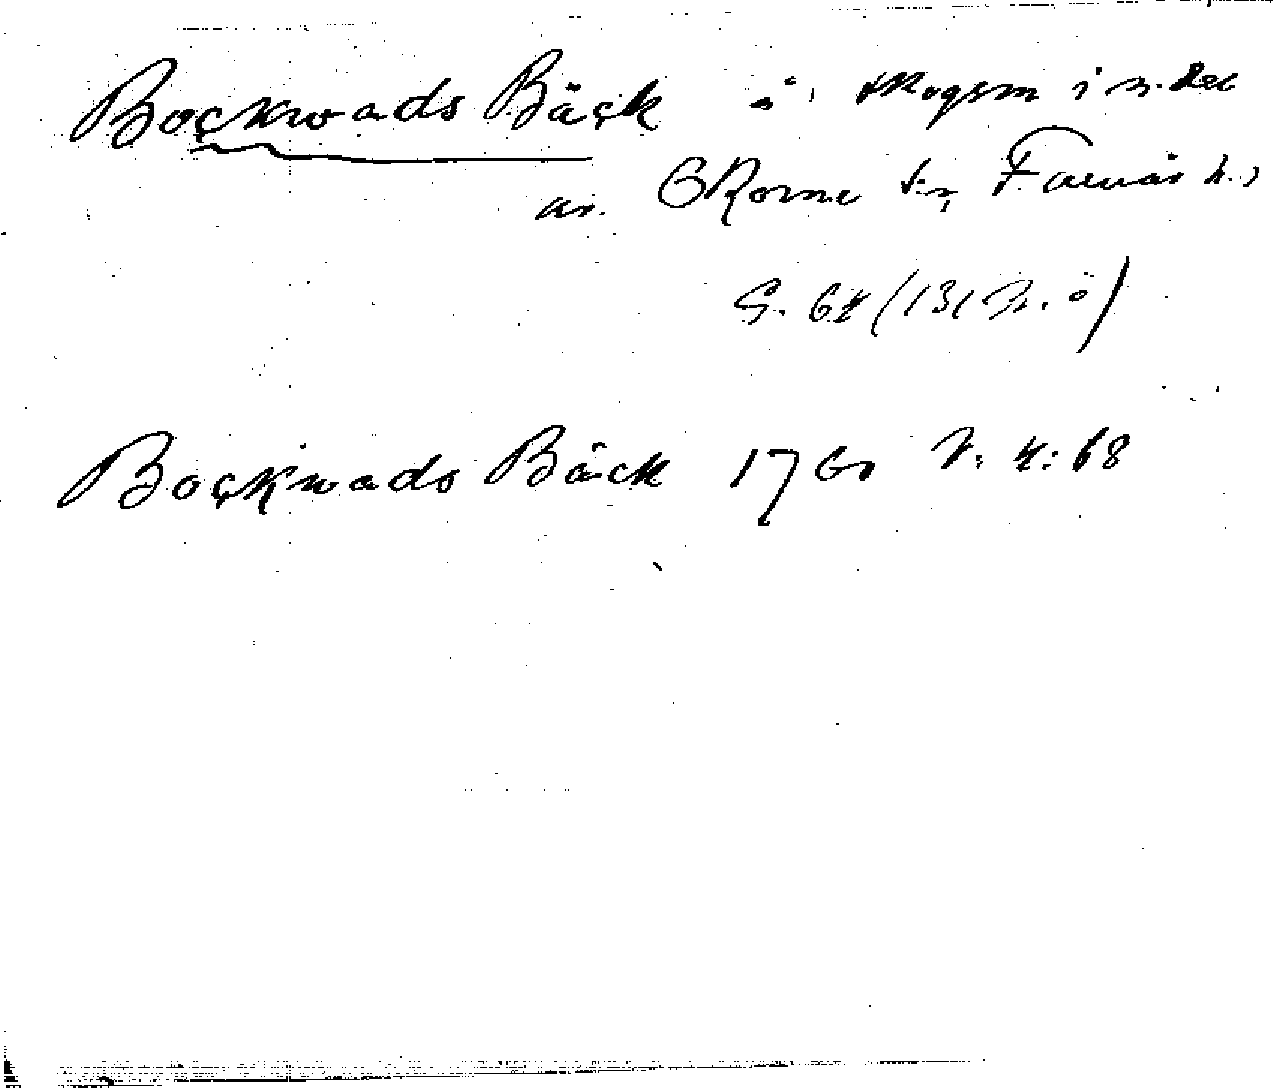 Bockwads Bäck å skogen i n. del
av Skorne sn, Farnäs h.,
S. 64 (131 N. ö)
Bockwads Bäck 1760 V. 4:68